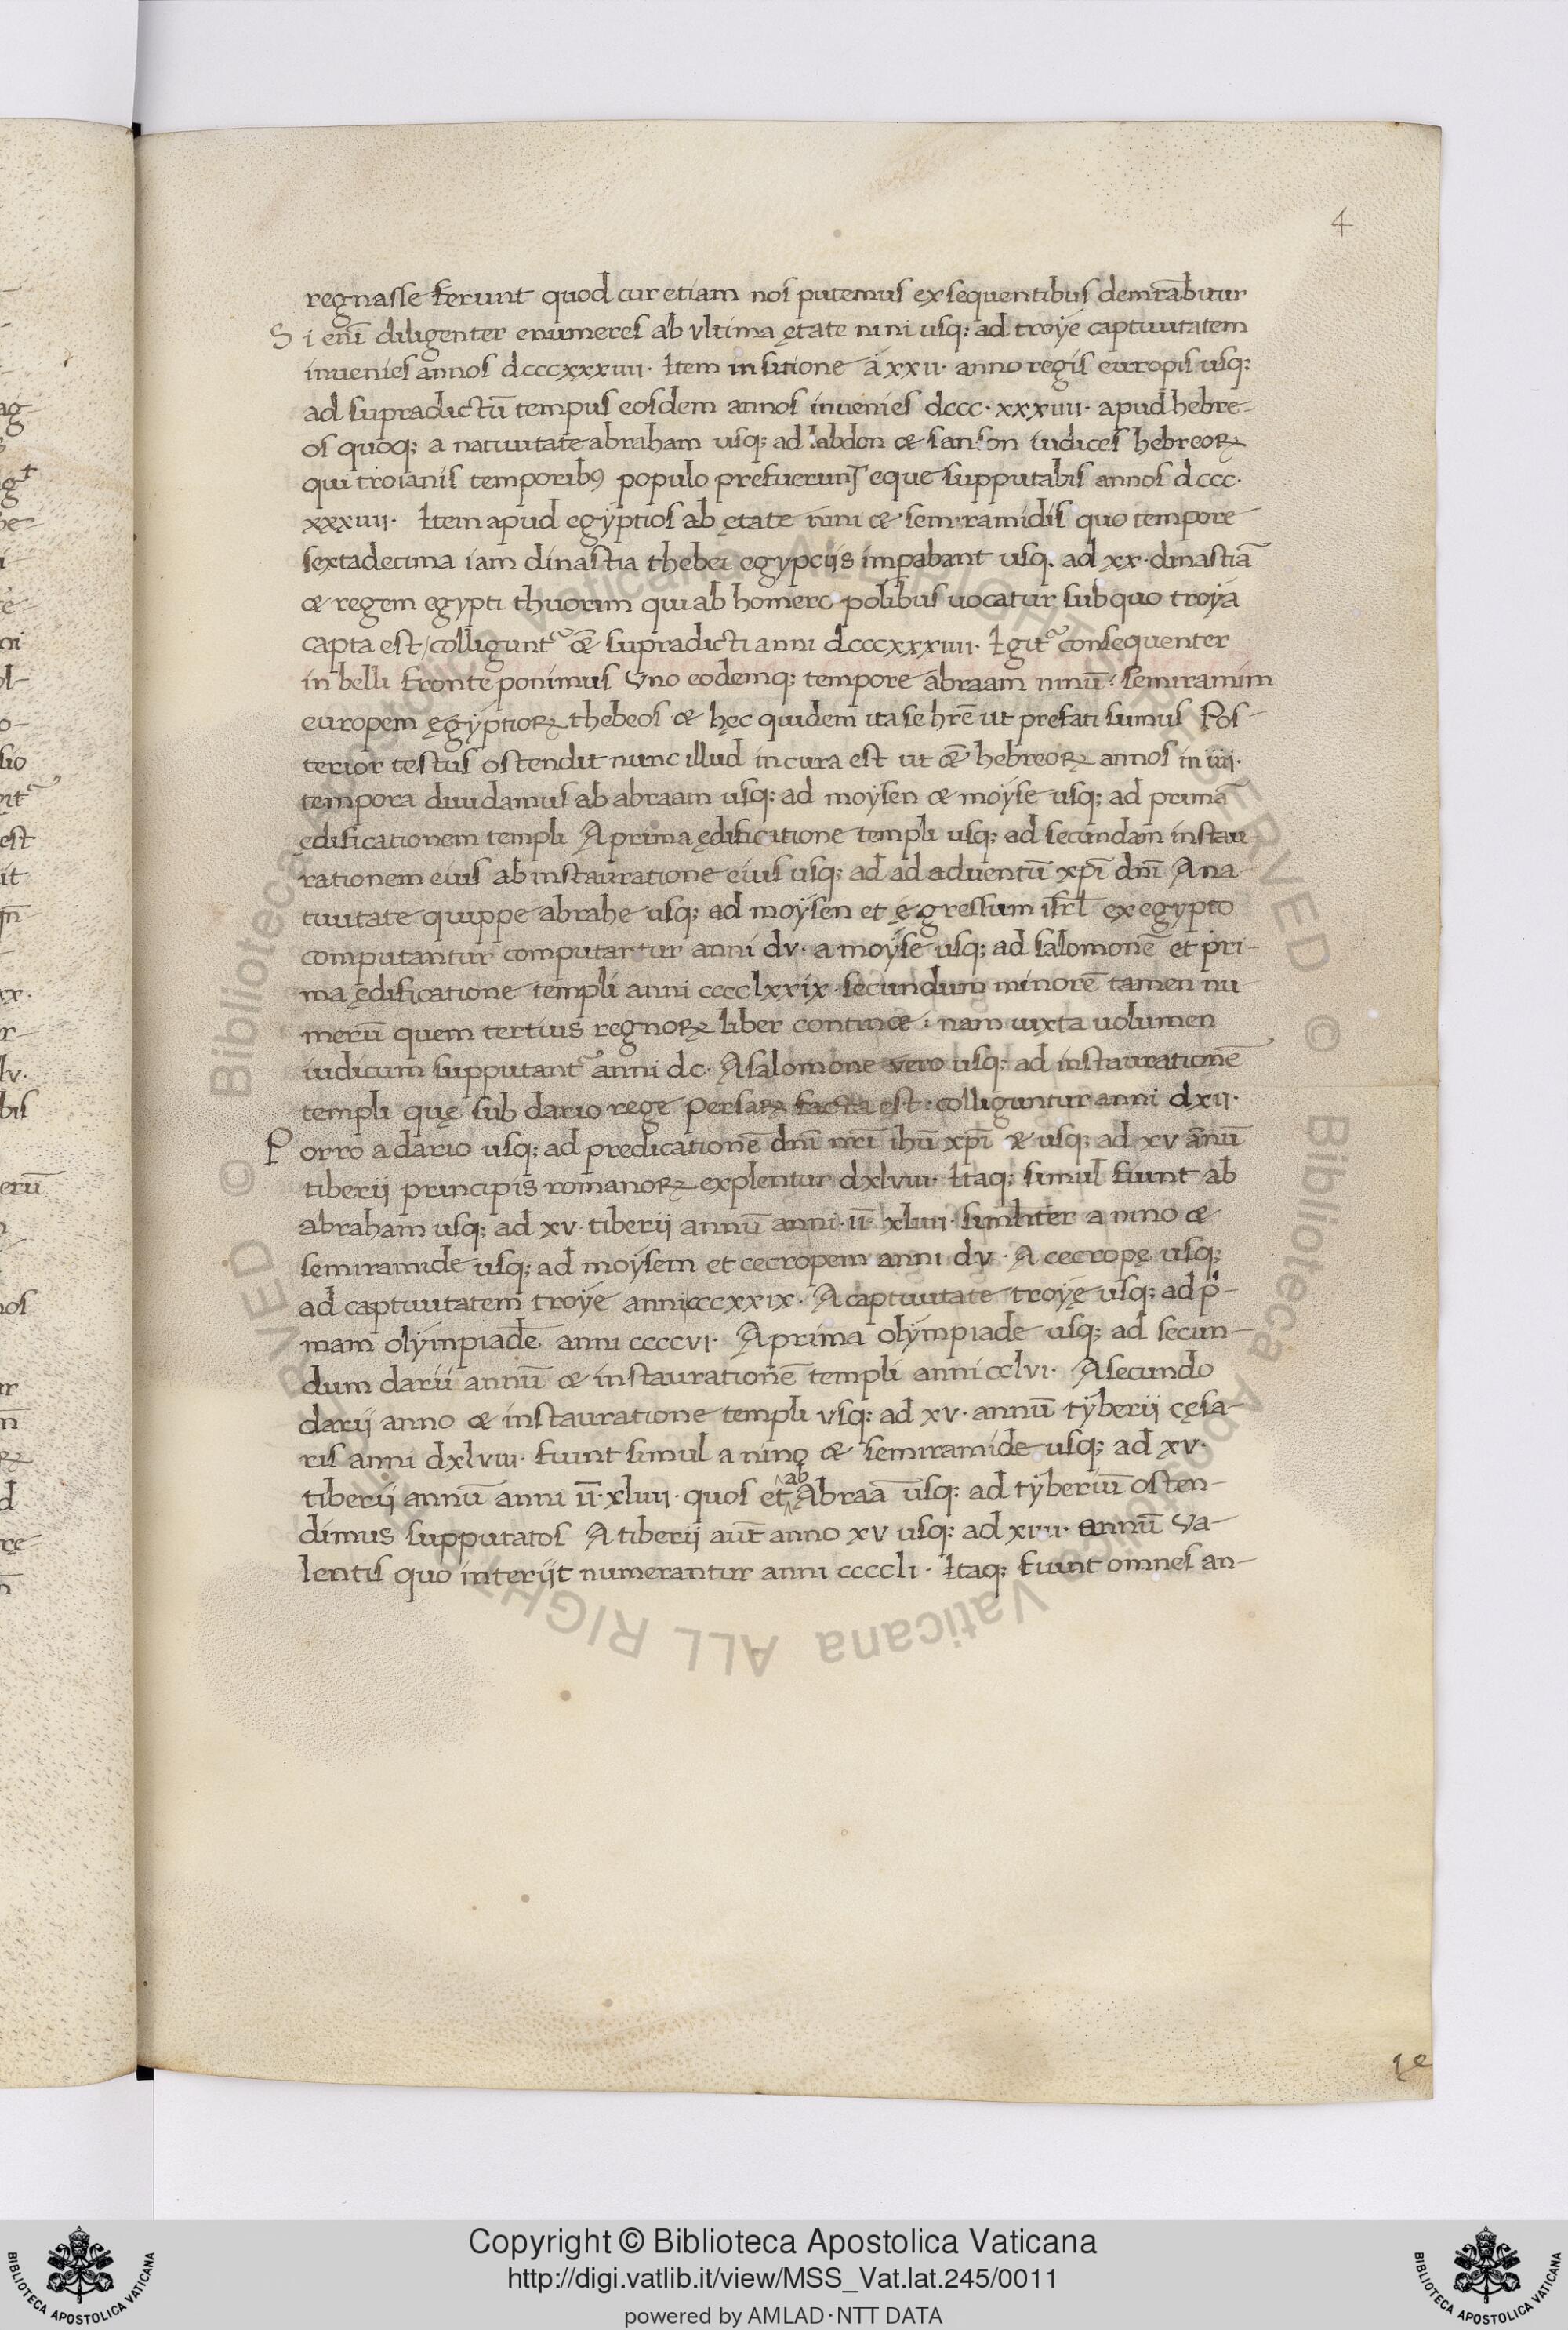 4
regnasse ferunt quod cur etiam nos putemus ex sequentibus demr̄abitur
Si eni̅ diligenter enumeres ab vltima ętate nini usq; ad troye captiuitatem
inuenies annos dcccxxxiiii. Item in sitione a xxii. anno regis europis usq;
ad supradictū tempus eosdem annos inuenies dccc. xxxiiii. apud hebre-
os quoq; a natiuitate abraham usq; ad labdon & sanson iudices hebreoꝝ
qui troianis temporibꝰ populo prefuerunt eque supputabis annos dccc.
xxxiiii. Item apud egyptios ab ętate nini & semiramidis quo tempore
sextadecima iam dinastia thebei egypciis imꝑabant usq. ad xx. dinastiā
& regem egypti thuorim qui ab homero polibus uocatur sub quo troya
capta est/colliguntᷣ & supradicti anni dcccxxxiiii. Igitᷣ consequenter
in belli fronte ponimus Vno eodemq; tempore abraam ninū: semiramim
europem ęgyptioꝝ thebeos & hęc quidem ita se hr̄e ut prefati sumus Pos-
terior testus ostendit nunc illud in cura est ut & hebreoꝝ annos in iiii.
tempora diuidamus ab abraam usq; ad moysen & moyse usq; ad primā
ędificationem templi A prima ędificatione templi usq; ad secundam instau
rationem eius ab instauratione eius usq; ad ad aduentū xpi̅ dni̅ A na
tiuitate quippe abrahe usq; ad moysen et ęgressum isrl̅ ex egypto
computantur computantur anni dv. a moyse usq; ad salomonē et pri-
ma ędificatione templi anni cccclxxix. secundum minorē tamen nu
merū quem tertius regnoꝝ liber contin&: nam iuxta uolumen
iudicum supputantᷣ anni dc. A salomone vero usq; ad instaurationē
templi quę sub dario rege Persaꝝ facta est: colliguntur anni dxii.
Porro a dario usq; ad predicationē dni̅ nri̅ ihū xpi̅ & usq; ad xv annū
tiberij principis romanoꝝ explentur dxlviii. Itaq; simul fiunt ab
abraham usq; ad xv. tiberij annū anni. ii̅ xliiii. similiter a nino &
semiramide usq; ad moysem et cecropem anni dv. A cecropę usq;
ad captiuitatem troye anni cccxxix. A captiuitate troyę usq; ad p̍-
mam olympiadē anni ccccvi. A prima olympiade usq; ad secun-
dum darii annū & instaurationē templi anni cclvi. A secundo
darij anno & instauratione templi vsq; ad xv. annū tyberij cęsa-
ris anni dxlviii. fiunt simul a nino & semiramide usq; ad xv.
tiberij annū anni ii̅. xliiii. quos et ab Abraā usq; ad tyberiū osten-
dimus supputatos A tiberij aut̅ anno xv usq; ad xiiii. annū Va-
lentis quo interijt numerantur anni ccccli. Itaq; fiunt omnes an-
Copyright © Biblioteca Apostolica Vaticana
http://digi.vatlib.it/view/MSS_Vat.lat.245/0011
powered by AMLAD·NTT DATA